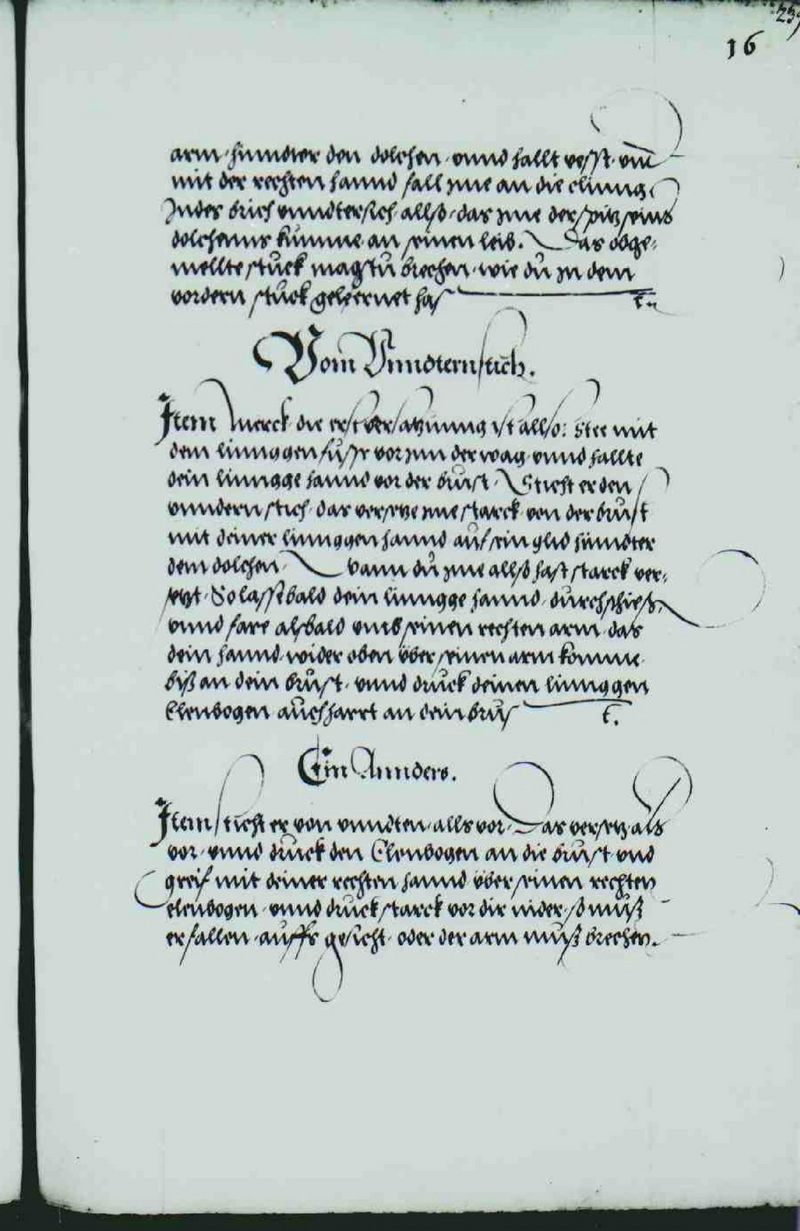 16
arm · hinndter den dolchen · vnnd hallt vesst · vnd
mit der rechten hannd fall ime an die clinng ·
Indes brich vnndtersich allso · das ime der spitz seins
dolchenns kumme an seinen leib. Das obge-
mellte stuck magstu brechen · wie du in dem
vordern stuck gelernet hast
Vom Vnndternstich.
Item Merck · die erst versatzunng ist allso: stee mit
dem linnggen fuss vor inn der wag · vnnd hallte
dein lingge hannd vor der brust · Sticht er den
vnndern stich · das versetze ime starck von der brust
mit deiner linnggen hannd auf sein glid hinndter
dem dolchen · Wann du ime allso hast starck ver-
setzt · So lass bald dein lingge hannd · durchschiess
vnnd fare alsbald vmb seinen rechten arm · das
dein hannd wider oben über seinen arm komme ·
biß an dein brust · vnnd druck deinen linnggen
Elenbogen auch hart an dein brust
Ein Annders.
Item sticht er von vnndten · alls vor · Das versetz als
vor · vnnd druck den Elenbogen an die brust vnd
greif mit deiner rechten hannd über seinen rechten
elenbogen · vnnd druck starck vor dir nider · so muß
er fallen · auffs gesicht · oder der arm muß brechen.